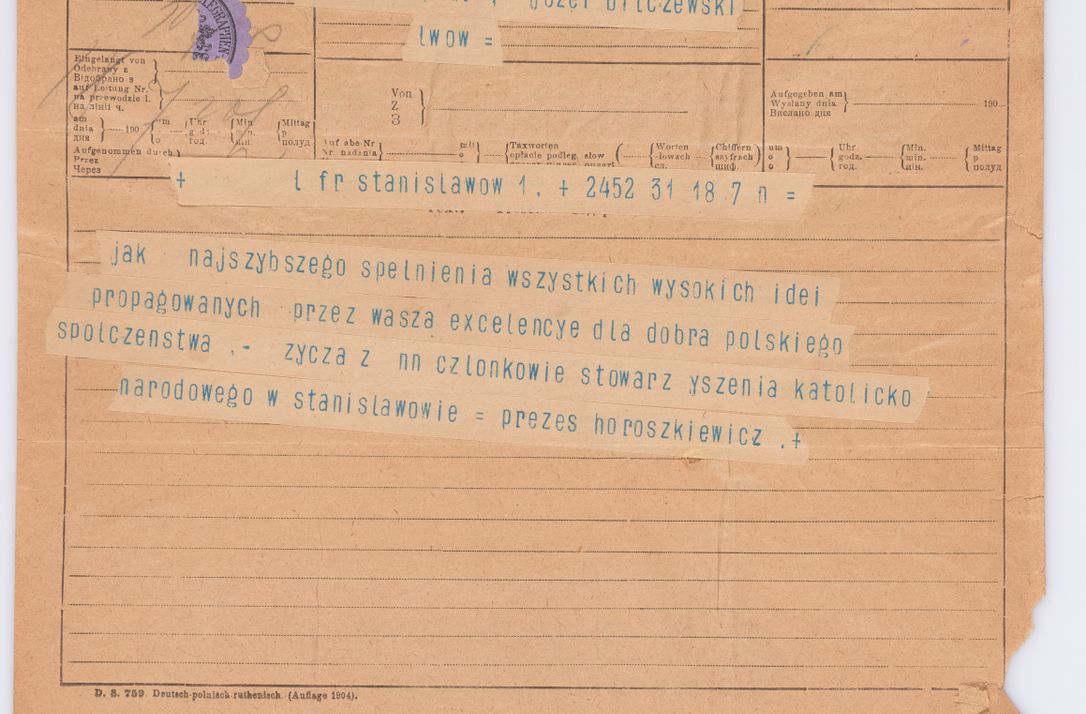 józef bilczewski
lwow =
TELEGRAPHEN
Eingelangt von
Odebrany z
Відобрано з
auf Leitung Nr.
na przewodzie l.
на лінїї ч.
Von
Z
З
Aufgegeben am
Wysłany dnia 190
Вислано дня
am
dnia 190
дня
um
o
Uhr
god.
год.
Min.
min.
мін.
Mittag
p
полуд
Aufgabe Nr
Nr. nadania
mit
o
Taxworten
opłacie podleg. słow
Worten
słowach
сл.
Chiffern
szyfrach
шиф.
um
o
o
Uhr.
godz.
год.
Min.
min.
мін.
Mittag
p
полуд
Aufgenommen durch
Przez
Через
+ l fr stanislawow 1. + 2452 31 18 7 n =
jak najszybszego spelnienia wszystkich wysokich idei
propagowanych przez wasza excelencye dla dobra polskiego
spolczenstwa .- zycza z nn czlonkowie stowarz yszenia katolicko
narodowego w stanislawowie = prezes horoszkiewicz .+
D. S. 759. Deutsch-polnisch ruthenisch. (Auflage 1904).